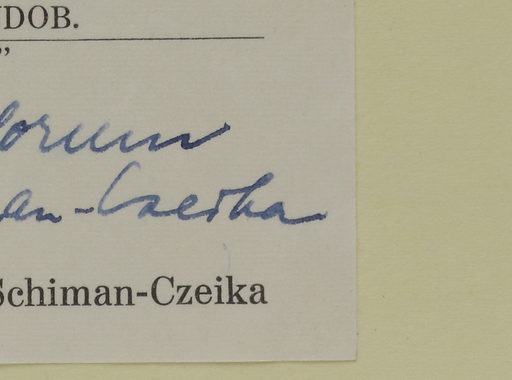 NDOB.
”
lorum
an-Czeika
Schiman-Czeika